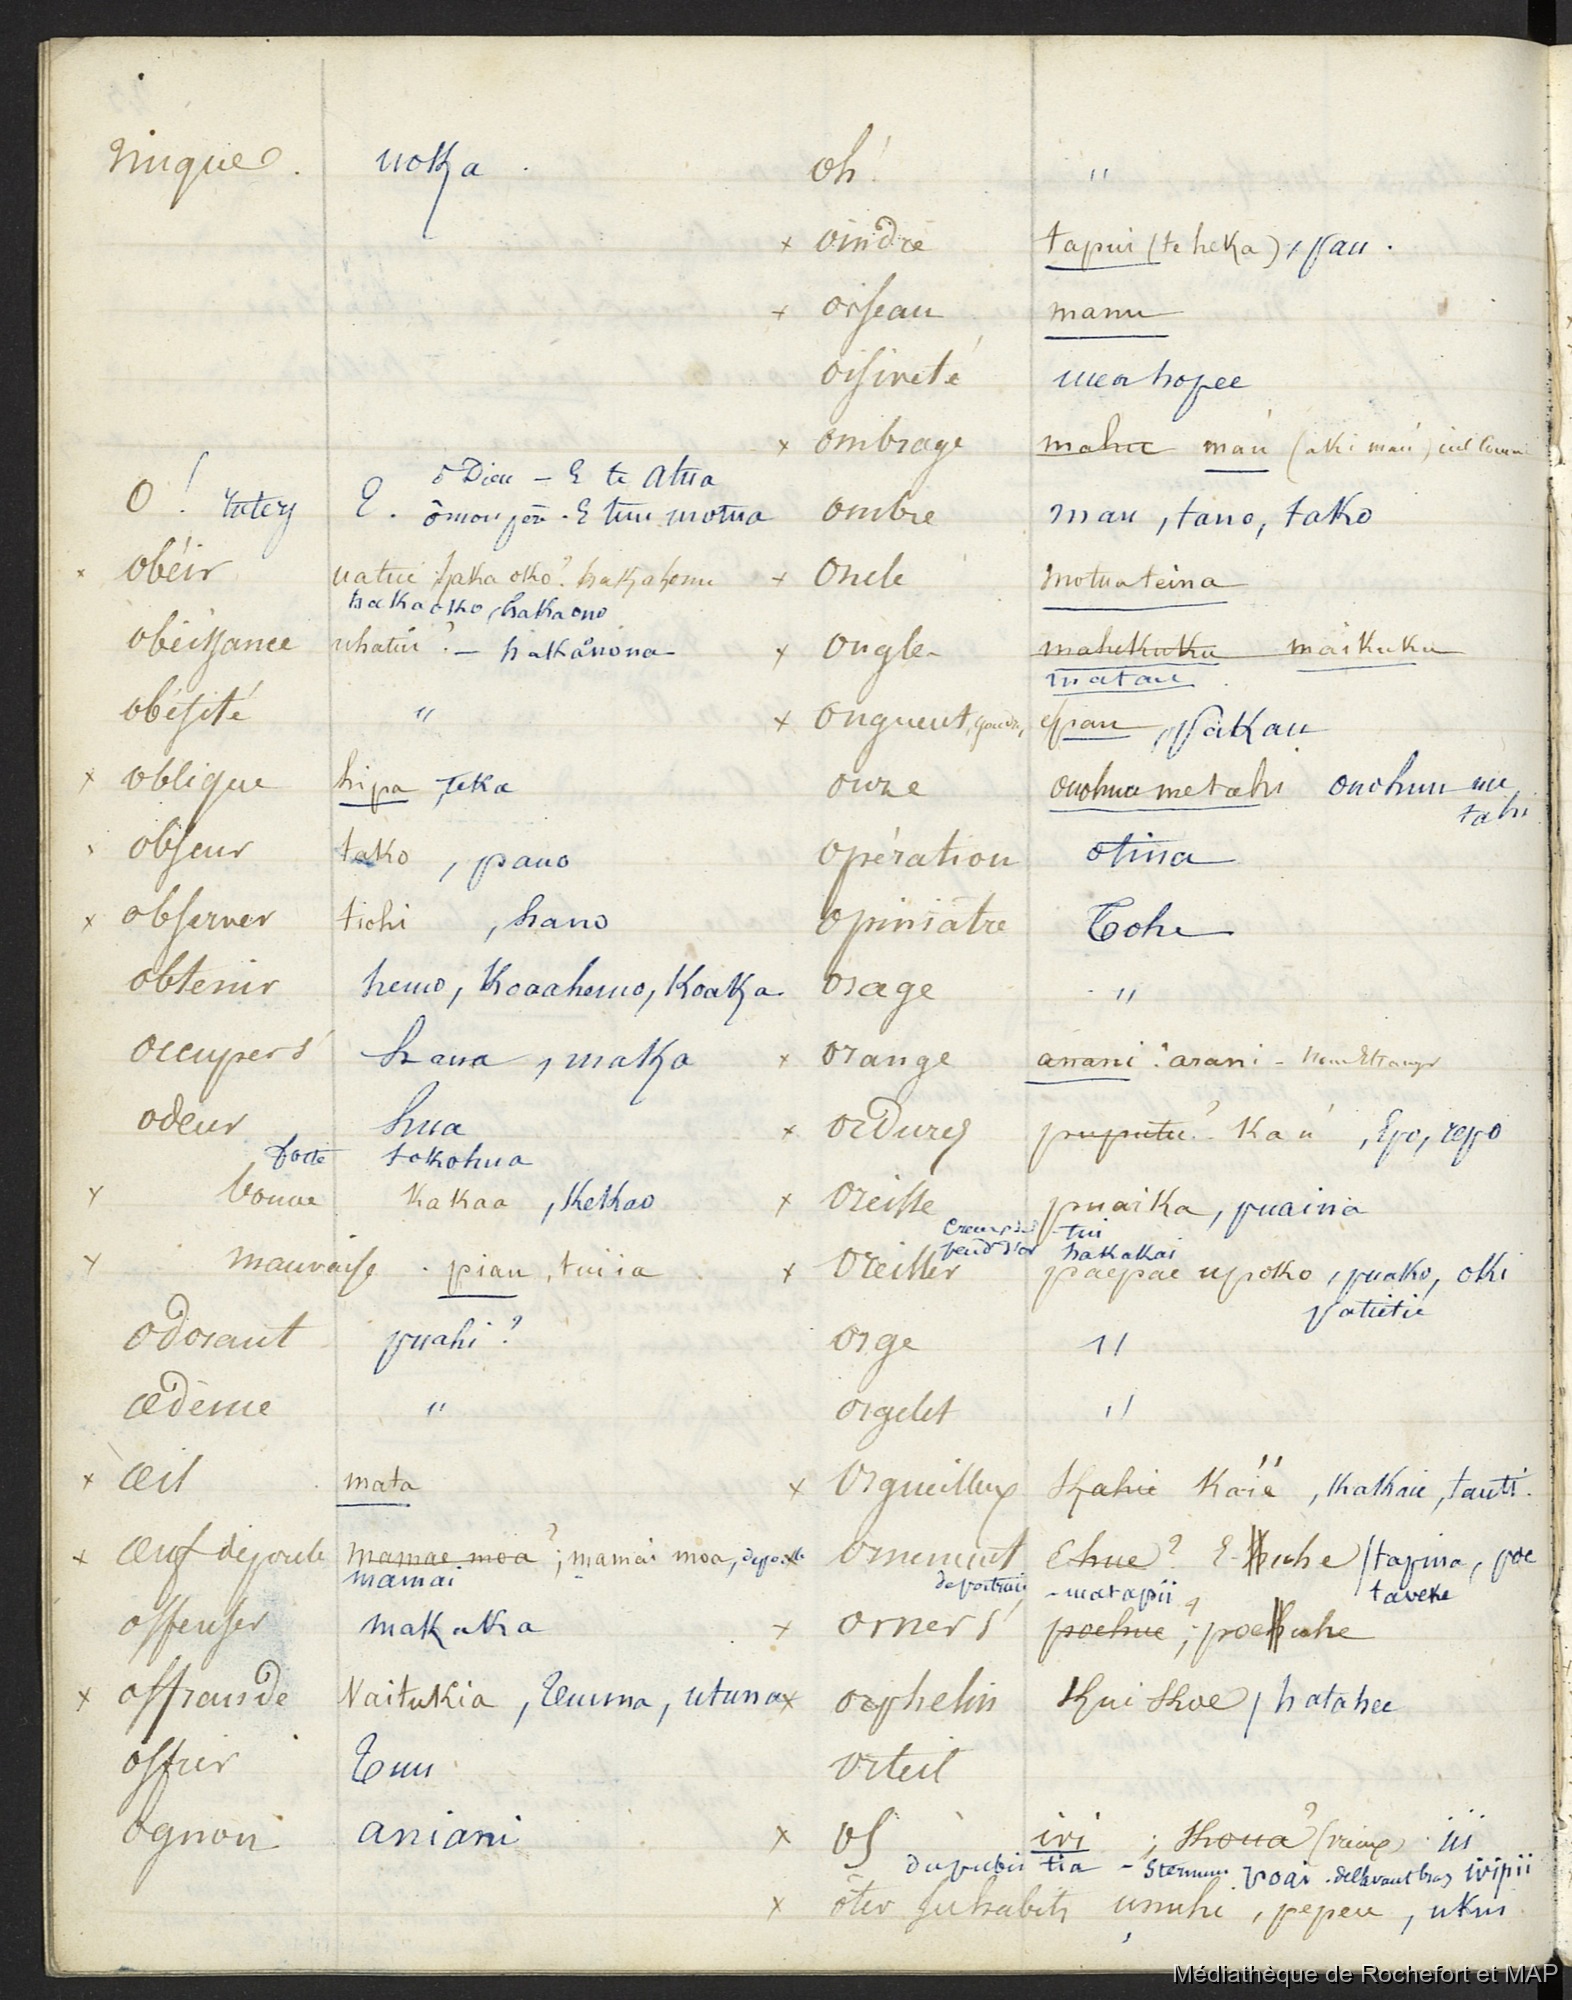 nuque. uoka.
O! interj E. ô Dieu – E te Atua
ô mon père - E tuu motua
× obéir uatuu haka oko? hakahemu
haka oko, hakaono
obéissance uhatuu? – hakaonona
obésité "
× oblique hipa, teka
obscur tako, pano
× observer tiohi, hano
obtenir hemo, Koaahemo, Koaka
occuper s' hana, maka
odeur hua
forte tokohua
× bonne kakaa, Kekao
× mauvaise . piau, tuiia
odorant puahi?
œdème "
× œil mata
× œuf de poule mamae moa?; mamai moa,
mamai
offenser makaka
× offrande Vaitukia, utuna
offrir Tuu
ognon aniani
oh! "
× oindre tapui (te heka), pau.
× oiseau manu
oisiveté mea hopee
× ombrage mahu maú (aki maú)
ombre mau, tano, tako
× Oncle motua teina
× ongle mahekuku maikuku
matau
× onguent, epau, pakau
onze onohuu me tahi onohuu me
tahi
opération otina
opiniâtre Tohe
orage "
× orange anani : arani - nom étranger
× ordures puputu? Kaú, Epo, repo
× oreille puaika, puaina
tui
hakakai
× oreiller paepae upoko, puako, oki
patietie
orge "
orgelet "
× Orgueilleux Kahie Kaïë, Kakaie, tauti.
× ornement Ehue? E uhe / tapina, poe
- matapii taveke
× orner s' poehue?; poe uhe
orphelin Kui Koe / hatahee
orteil
× os ivi ; Koua? (vieux) iii
du pubis tia – Sternum Voai. de l'avant bras ivipii
× ôter ses habits unuhi, pepeu, ukui
Médiathèque de Rochefort et MAP